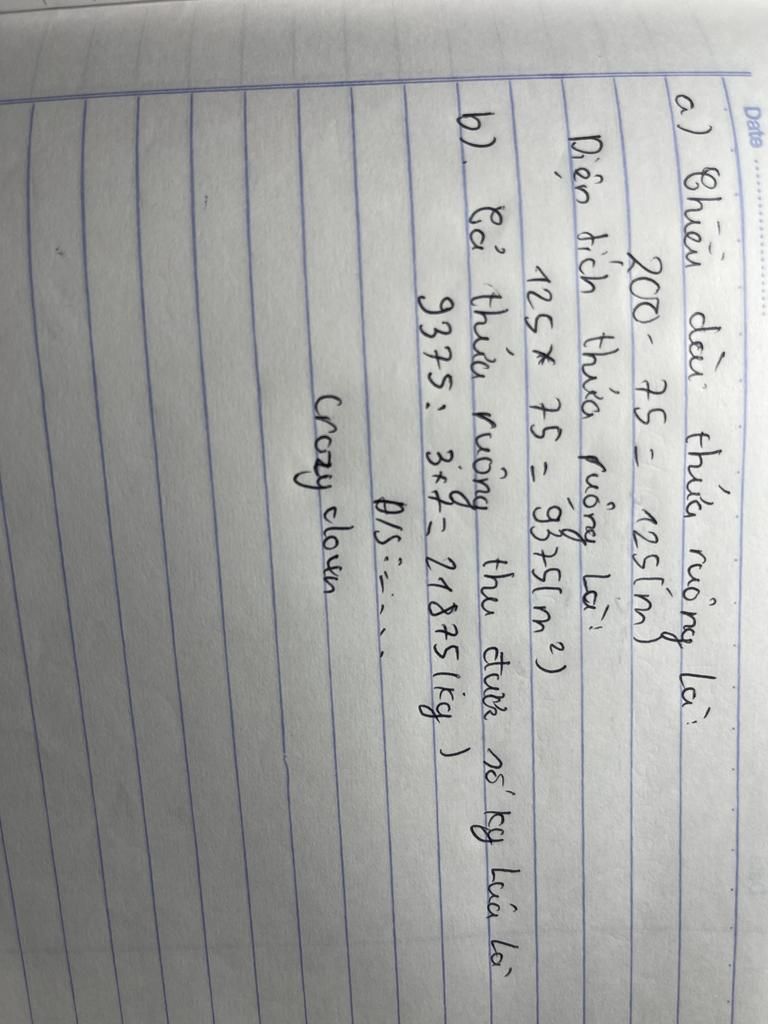 Date
a) Chiều dài thửa ruộng là:
200 - 75 = 125(m)
Diện tích thửa ruộng là:
125 * 75 = 9375(m²)
b). Cả thửa ruộng thu được số kg lúa là
9375: 3*7 = 21875(kg)
Đ/S: = ...
Crazy clown